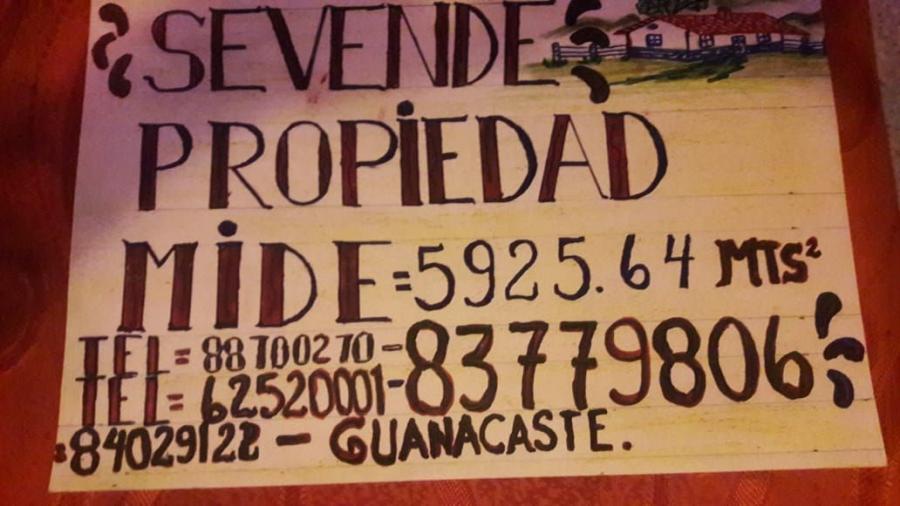 SEVENDE
PROPiEDAD
MiDE=5925.64 MTS²
TEL= 88700270-83779806
TEL= 62520001-
:84029122 - GUANACASTE.